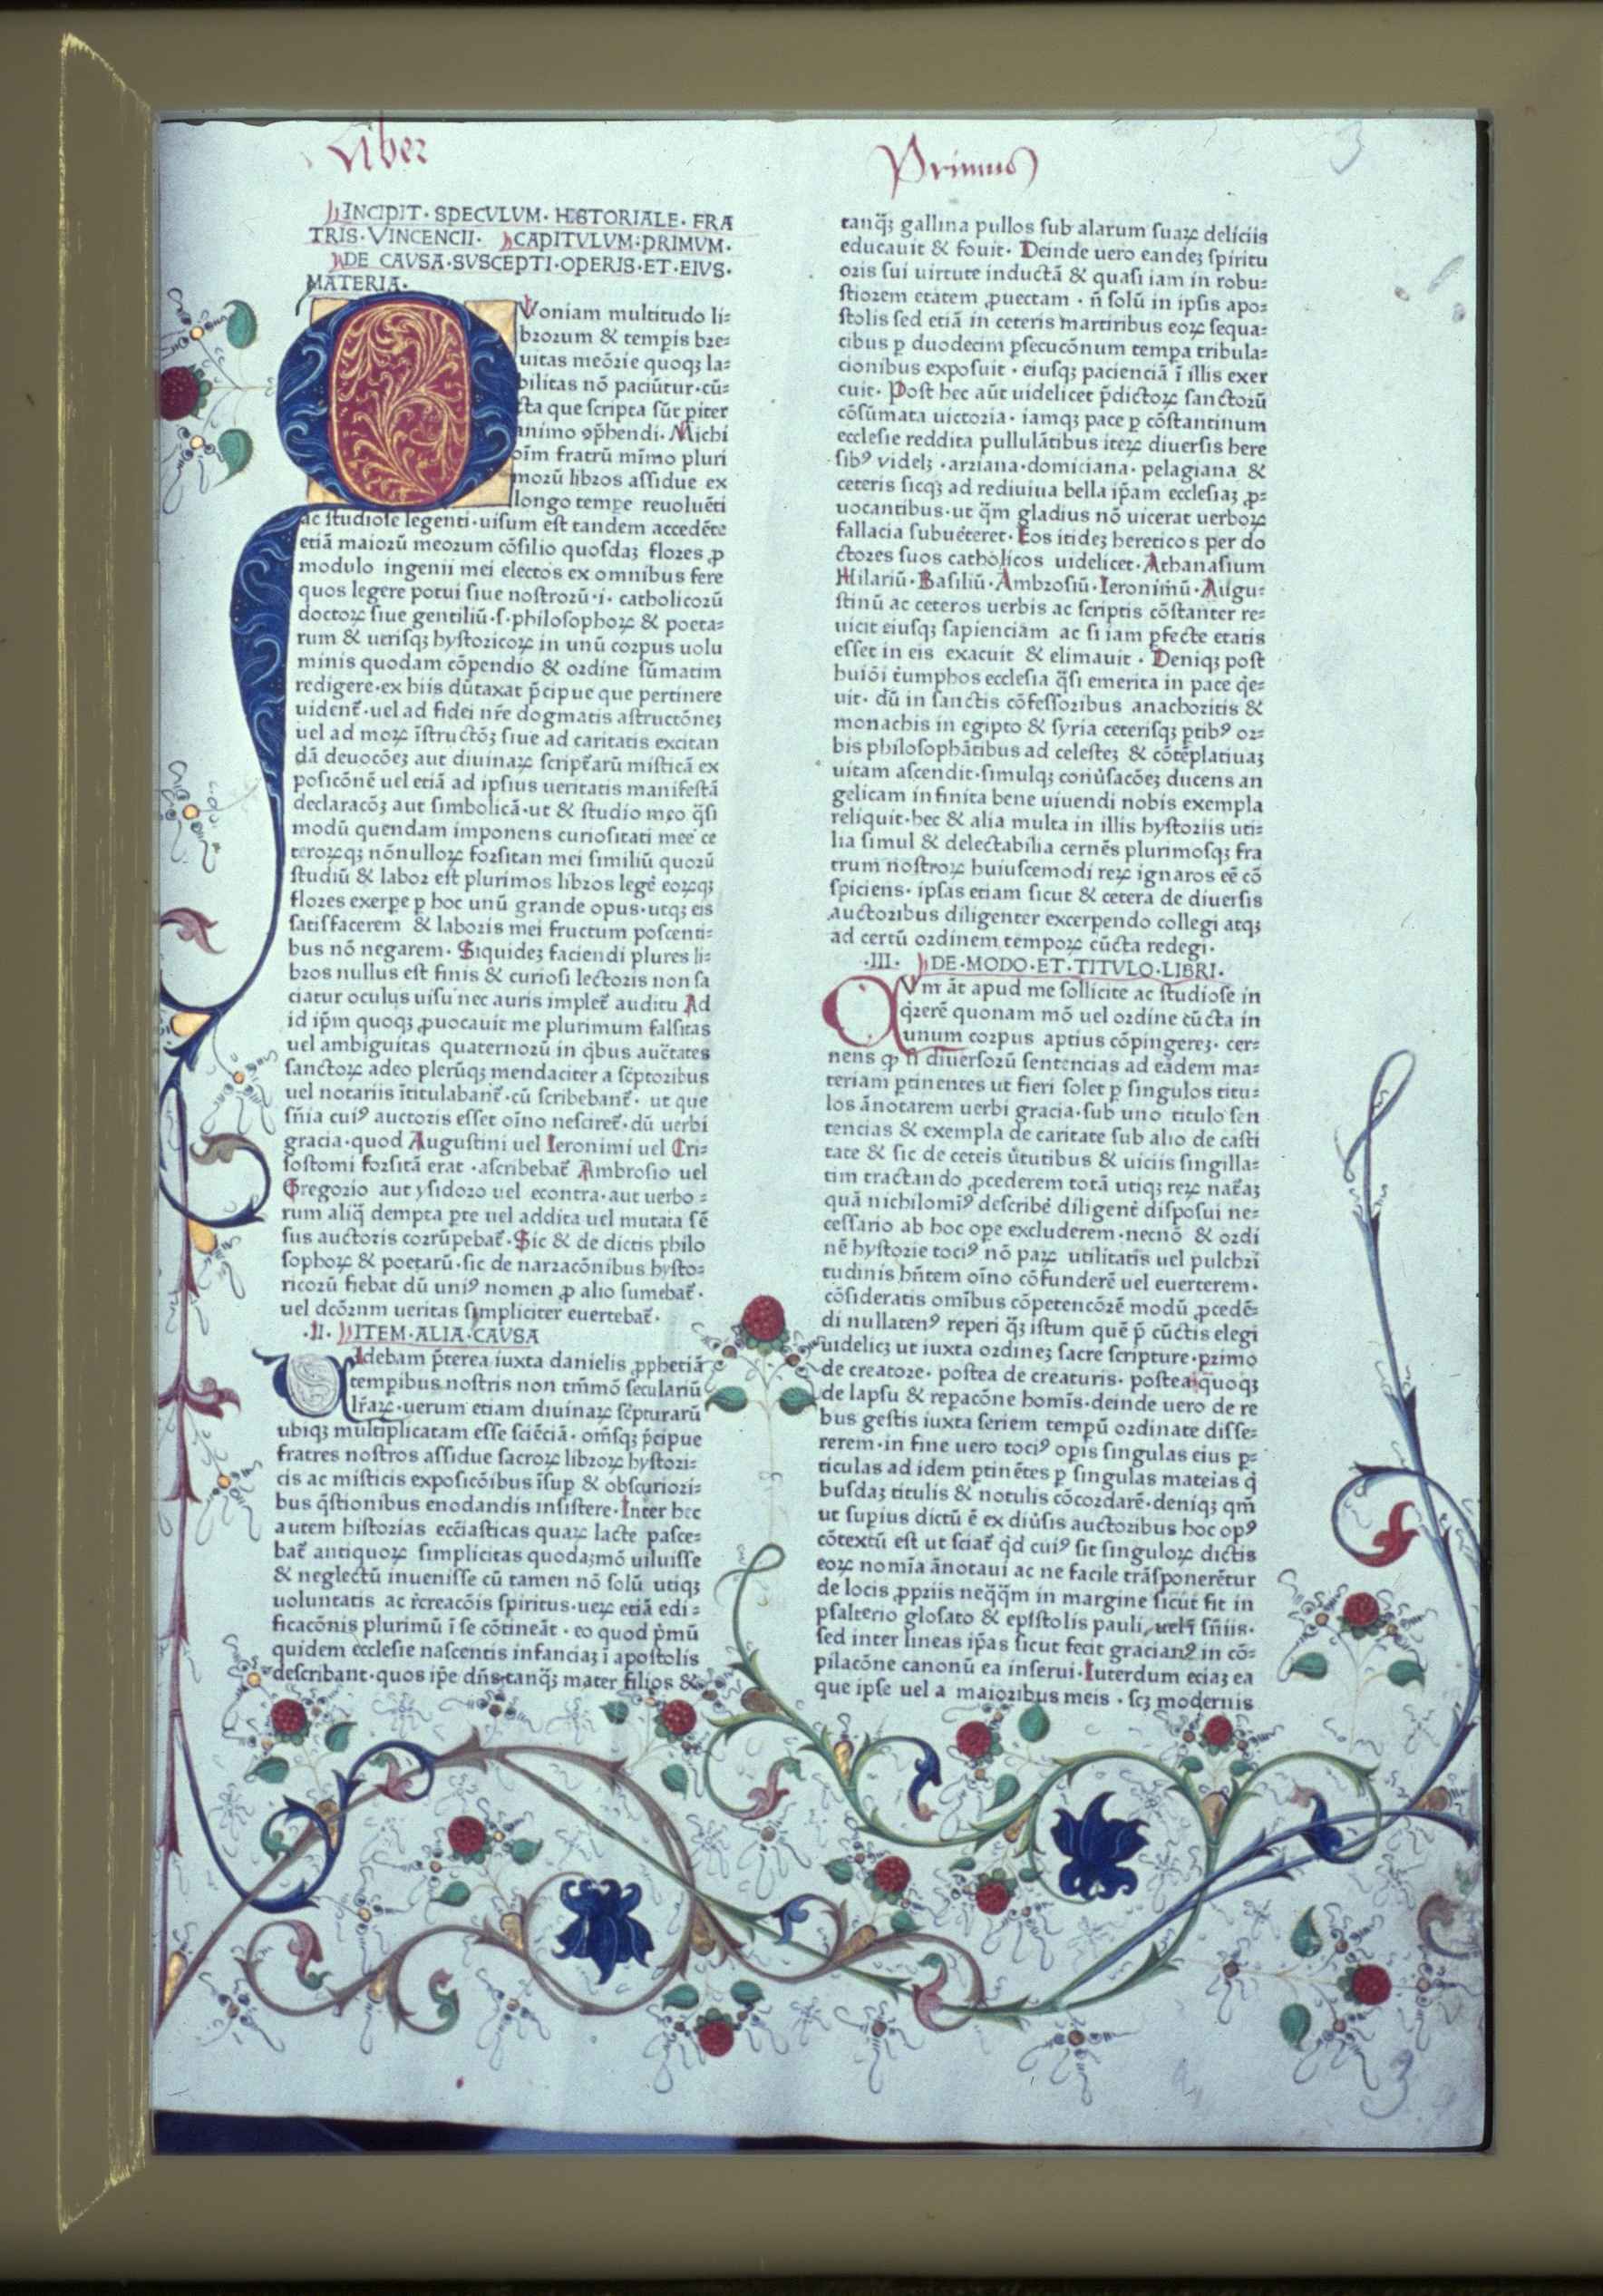 Liber
Primus
3
INCIPIT · SPECVLVM · HISTORIALE · FRA
TRIS · VINCENCII · CAPITVLVM : PRIMVM ·
DE CAVSA · SVSCEPTI · OPERIS · ET · EIVS ·
MATERIA ·
QVoniam multitudo li⸗
brorum & temꝑis bre⸗
uitas meõrie quoqꝫ la⸗
bilitas nõ paciũtur · cũ⸗
cta que scripta sũt ꝑiter
animo ꝯp̃hendi · Michi
oĩm fratrũ mĩmo pluri
morũ libros assidue ex
longo tempe reuoluẽti
ac studiose legenti · uisum est tandem accedẽte
etiã maiorũ meorum cõsilio quosdaꝫ flores ꝓ
modulo ingenii mei electos ex omnibus fere
quos legere potui siue nostrorũ · i · catholicorũ
doctoꝝ siue gentiliũ · s · philosophoꝝ & poeta⸗
rum & uerisqꝫ hystoricoꝝ in unũ corpus uolu
minis quodam cõpendio & ordine sũmatim
redigere · ex hiis dũtaxat p̃cipue que pertinere
uident᷑ · uel ad fidei nr̃e dogmatis astructõneꝫ
uel ad moꝝ ĩstructõꝫ siue ad caritatis excitan
dã deuocõeꝫ aut diuinaꝝ script᷑arũ misticã ex
posicõnẽ uel etiã ad ipsius ueritatis manifestã
declaracõꝫ aut simbolicã · ut & studio meo q̃si
modũ quendam imponens curiositati mee ce
teroꝝqꝫ nõnulloꝝ forsitan mei similiũ quorũ
studiũ & labor est plurimos libros leg̃e eoꝝqꝫ
flores exerpe ꝑ hoc unũ grande opus · utqꝫ eis
satisfacerem & laboris mei fructum poscenti⸗
bus nõ negarem · Siquideꝫ faciendi plures li⸗
bros nullus est finis & curiosi lectoris non sa
ciatur oculus uisu nec auris implet᷑ auditu Ad
id ip̃m quoqꝫ ꝓuocauit me plurimum falsitas
uel ambiguitas quaternorũ in q̃bus auc̃tates
sanctoꝝ adeo plerũqꝫ mendaciter a sc̃ptoribus
uel notariis ĩtitulabant᷑ · cũ scribebant᷑ · ut que
sñia cuiꝰ auctoris esset oĩno nesciret᷑ · dũ uerbi
gracia · quod Augustini uel Ieronimi uel Cri⸗
sostomi forsitã erat · ascribebat᷑ Ambrosio uel
Gregorio aut ysidoro uel econtra · aut uerbo⸗
rum aliq̃ dempta ꝑte uel addita uel mutata sẽ
sus auctoris corrũpebat᷑ · Sic & de dictis philo
sophoꝝ & poetarũ · sic de narracõnibus hysto⸗
ricorũ fiebat dũ uniꝰ nomen ꝓ alio sumebat᷑ ·
uel dcõrum ueritas simpliciter euertebat᷑ ·
· II · ITEM · ALIA · CAVSA
VIdebam p̃terea iuxta danielis ꝓphetiã
temꝑibus nostris non tm̃mõ seculariũ
lr̃aꝝ · uerum etiam diuinaꝝ sc̃pturarũ
ubiqꝫ multiplicatam esse sciẽciã · om̃sqꝫ p̃cipue
fratres nostros assidue sacroꝝ libroꝝ hystori⸗
cis ac misticis exposicõibus ĩsuꝑ & obscuriori⸗
bus q̃stionibus enodandis insistere · Inter hec
autem historias ecc̃iasticas quaꝝ lacte pasce⸗
bat᷑ antiquoꝝ simplicitas quodaꝫmõ uiluisse
& neglectũ inuenisse cũ tamen nõ solũ utiqꝫ
uoluntatis ac r̃creacõis spiritus · ueꝝ etiã edi⸗
ficacõnis plurimũ ĩ se cõtineãt · eo quod p̃mũ
quidem ecclesie nascentis infanciaꝫ ĩ apostolis
describant · quos ip̃e dñs tanq̃ꝫ mater filios &
tanq̃ꝫ gallina pullos sub alarum suaꝝ deliciis
educauit & fouit · Deinde uero eandeꝫ spiritu
oris sui uirtute inductã & quasi iam in robu⸗
stiorem etatem ꝓuectam · ñ solũ in ipsis apo⸗
stolis sed etiã in ceteris martiribus eoꝝ sequa⸗
cibus ꝑ duodecim ꝑsecucõnum tempa tribula⸗
cionibus exposuit · eiusqꝫ pacienciã ĩ illis exer
cuit · Post hec aũt uidelicet p̃dictoꝝ sanctorũ
cõsũmata uictoria · iamqꝫ pace ꝑ cõstantinum
ecclesie reddita pullulãtibus iteꝝ diuersis here
sibꝰ videlꝫ · arriana · domiciana · pelagiana &
ceteris sicqꝫ ad rediuiua bella ip̃am ecclesiaꝫ ꝓ⸗
uocantibus · ut q̃m gladius nõ uicerat uerboꝝ
fallacia subuẽteret · Eos itideꝫ hereticos per do
ctores suos catholicos uidelicet · Athanasium
Hilariũ · Basiliũ · Ambrosiũ · Ieronimũ · Augu⸗
stinũ ac ceteros uerbis ac scriptis cõstanter re⸗
uicit eiusqꝫ sapienciam ac si iam ꝑfecte etatis
esset in eis exacuit & elimauit · Deniqꝫ post
huiõi t̃umphos ecclesia q̃si emerita in pace q̃e⸗
uit · dũ in sanctis cõfessoribus anachoritis &
monachis in egipto & syria ceterisqꝫ ꝑtibꝰ or⸗
bis philosophãtibus ad celesteꝫ & cõtẽplatiuaꝫ
uitam ascendit · simulqꝫ coñũsacõeꝫ ducens an
gelicam infinita bene uiuendi nobis exempla
reliquit · hec & alia multa in illis hystoriis uti⸗
lia simul & delectabilia cernẽs plurimosqꝫ fra
trum nostroꝝ huiuscemodi reꝝ ignaros eẽ cõ
spiciens · ipsas etiam sicut & cetera de diuersis
auctoribus diligenter excerpendo collegi atqꝫ
ad certũ ordinem tempoꝝ cũcta redegi ·
· III · DE · MODO · ET · TITVLO · LIBRI ·
QVm ãt apud me sollicite ac studiose in
q̃rerẽ quonam mõ uel ordine cũcta in
unum corpus aptius cõpingereꝫ · cer⸗
nens ꝙ si diuersorũ sentencias ad eãdem ma⸗
teriam ꝑtinentes ut fieri solet ꝑ singulos titu⸗
los ãnotarem uerbi gracia · sub uno titulo sen
tencias & exempla de caritate sub alio de casti
tate & sic de ceteis ũtutibus & uiciis singilla⸗
tim tractando ꝓcederem totã utiqꝫ reꝝ nat᷑aꝫ
quã nichilomĩꝰ describẽ diligent᷑ disposui ne⸗
cessario ab hoc oꝑe excluderem · necnõ & ordi
nẽ hystorie tociꝰ nõ paꝝ utilitatis uel pulchri
tudinis hñtem oĩno cõfunderẽ uel euerterem ·
cõsideratis omĩbus cõpetencõrẽ modũ ꝓcedẽ⸗
di nullatenꝰ reperi q̃ꝫ istum quẽ p̃ cũctis elegi
uidelicꝫ ut iuxta ordineꝫ sacre scripture · primo
de creatore · postea de creaturis · postea quoqꝫ
de lapsu & reꝑacõne homĩs · deinde uero de re
bus gestis iuxta seriem tempũ ordinate disse⸗
rerem · in fine uero tociꝰ opis singulas eius ꝑ⸗
ticulas ad idem ꝑtinẽtes ꝑ singulas mateias q̃
busdaꝫ titulis & notulis cõcordarẽ · deniqꝫ qm̃
ut supius dictũ ẽ ex diũsis auctoribus hoc opꝰ
cõtextũ est ut sciat᷑ q̃d cuiꝰ sit singuloꝝ dictis
eoꝝ nomĩa ãnotaui ac ne facile trãsponerẽtur
de locis ꝓpriis neq̃q̃m in margine sicut fit in
psalterio glosato & epistolis pauli, uel ĩ sñiis ·
sed inter lineas ip̃as sicut fecit gracianꝰ in cõ⸗
pilacõne canonũ ea inserui · Iuterdum eciaꝫ ea
que ipse uel a maioribus meis · scꝫ modernis
3